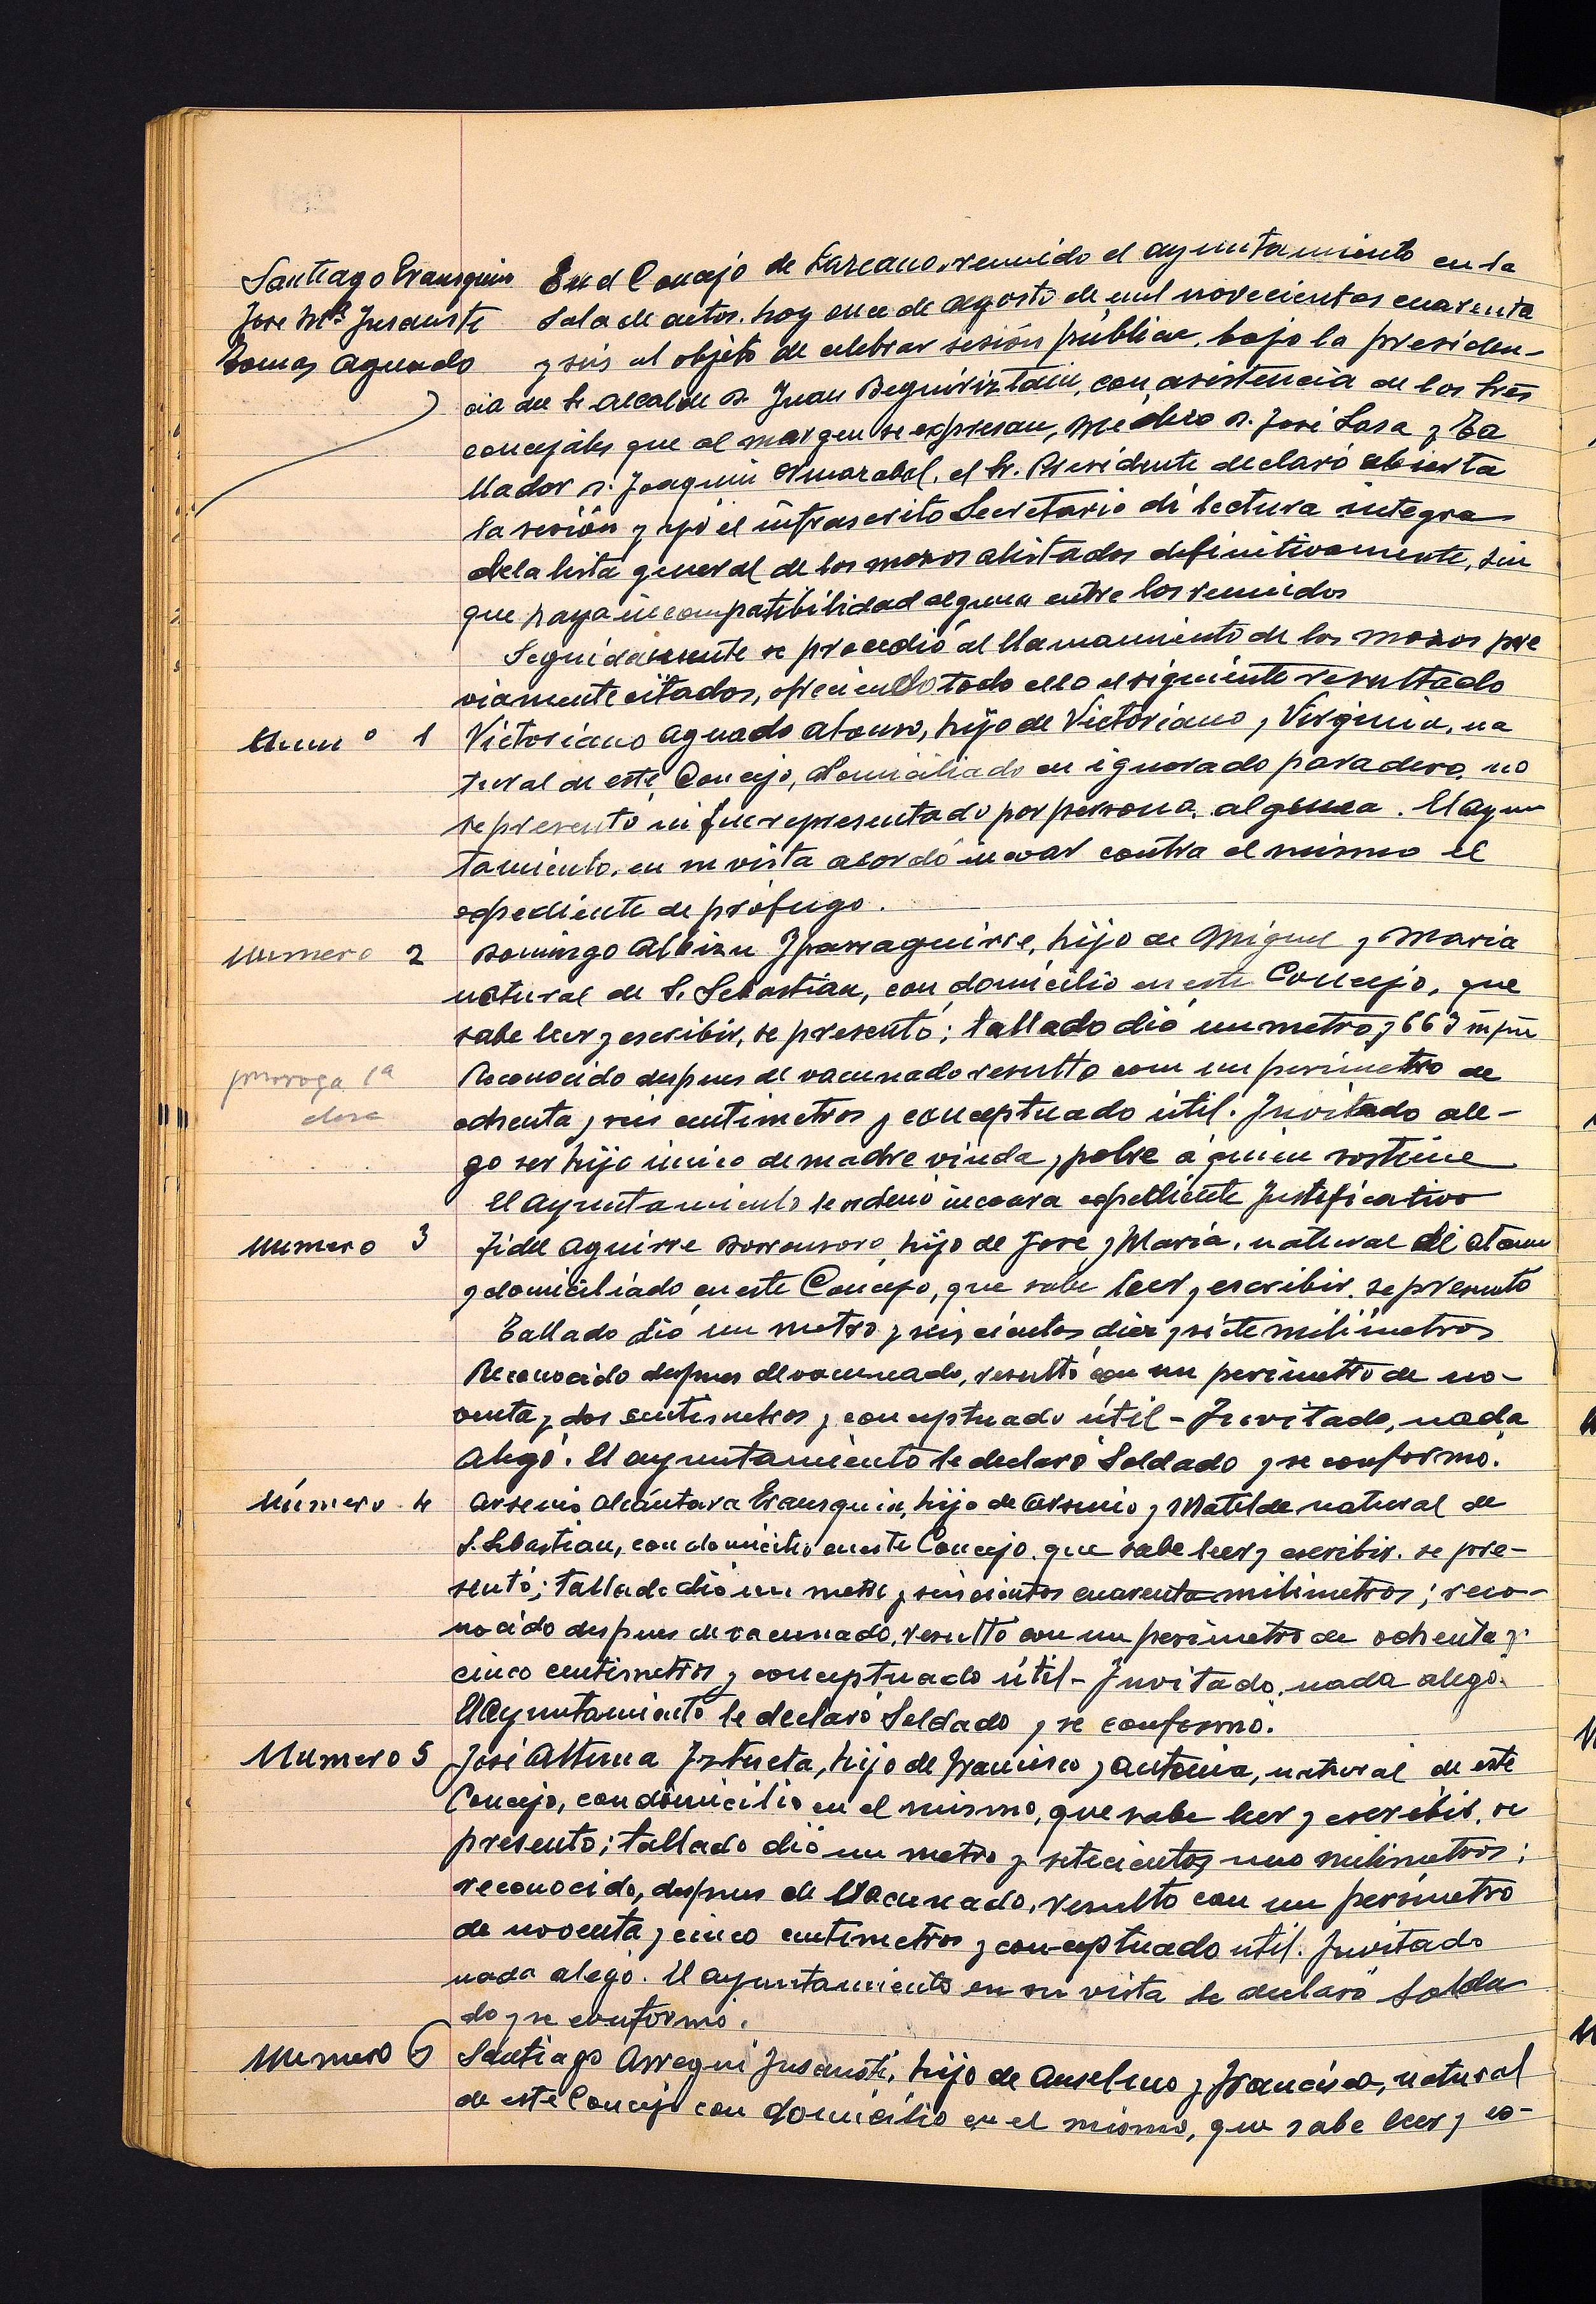 Santiago Eransquin
Jose Mª Insausti
Tomas Aguado
En el Concejo de Lazcano, reunido el ayuntamiento en la
Sala de actos, hoy once de agosto de mil novecientos cuarenta
y seis al objeto de celebrar sesión pública, bajo la presiden-
cia del Sr Alcalde D. Juan Beguiriztain, con asistencia de los Sres
concejales que al margen se expresan, Medico D. José Lasa y Ta
llador D. Joaquin Ormazabal, el Sr. Presidente declaró abierta
la sesión y yo el infrascrito Secretario di lectura integra
de la lista general de los mozos alistados definitivamente, sin
que haya incompatibilidad alguna entre los reunidos
Seguidamente se procedió al llamamiento de los mozos pre
viamente citados, ofreciendo todo ello el siguiente resultado
Num º 1 Victoriano Aguado Alonso, hijo de Victoriano y Virginia, na
tural de este Concejo, domiciliado en ignorado paradero, no
se presentó ni fue representado por persona alguna. El ayun
tamiento, en su vista acordó incoar contra el mismo el
expediente de prófugo.
Numero 2 Domingo Albizu Iparraguirre, hijo de Miguel y Maria
natural de S. Sebastian, con domicilio en este Concejo, que
sabe leer y escribir, se presentó; tallado dió un metro y 663 m/m
prorroga 1ª
clase
Reconocido despues de vacunado resulto con un perimetro de
ochenta y seis centimetros y conceptuado útil. Invitado ale-
go ser hijo único de madre viuda y pobre á quien sostiene
El Ayuntamiento le ordenó incoara expediente justificativo
Numero 3 Fidel Aguirre Dorronsoro, hijo de José y Maria, natural de Ataun
y domiciliado en este Concejo, que sabe leer y escribir, se presentó
Tallado dió un metro y seiscientos diez y siete milimetros
Reconocido despues de vacunado, resultó con un perimetro de no-
venta y dos centimetros y conceptuado útil - Invitado, nada
alegó. El ayuntamiento le declaró Soldado y se conformó.
Número 4 Arsenio Alcántara Eransquin, hijo de Arsenio y Matilde natural de
S. Sebastian, con domicilio en este Concejo, que sabe leer y escribir, se pre-
sentó; tallado dió un metro y seiscientos cuarenta milimetros; reco-
nocido despues de vacunado, resultó con un perimetro de ochenta y
cinco centimetros y conceptuado útil - Invitado, nada alegó.
El Ayuntamiento le declaró Soldado y se conformó.
Numero 5 José Altuna Iztueta, hijo de Francisco y Antonia, natural de este
Concejo, con domicilio en el mismo, que sabe leer y escribir, se
presentó; tallado dió un metro y setecientos uno milimetros;
reconocido, despues de vacunado, resulto con un perimetro
de noventa y cinco centimetros y conceptuado útil. Invitado
nada alegó. El ayuntamiento en su vista le declaró Solda
do y se conformó.
Numero 6 Santiago Arregui Insausti, hijo de Anselmo y Francisca, natural
de este Concejo con domicilio en el mismo, que sabe leer y es-